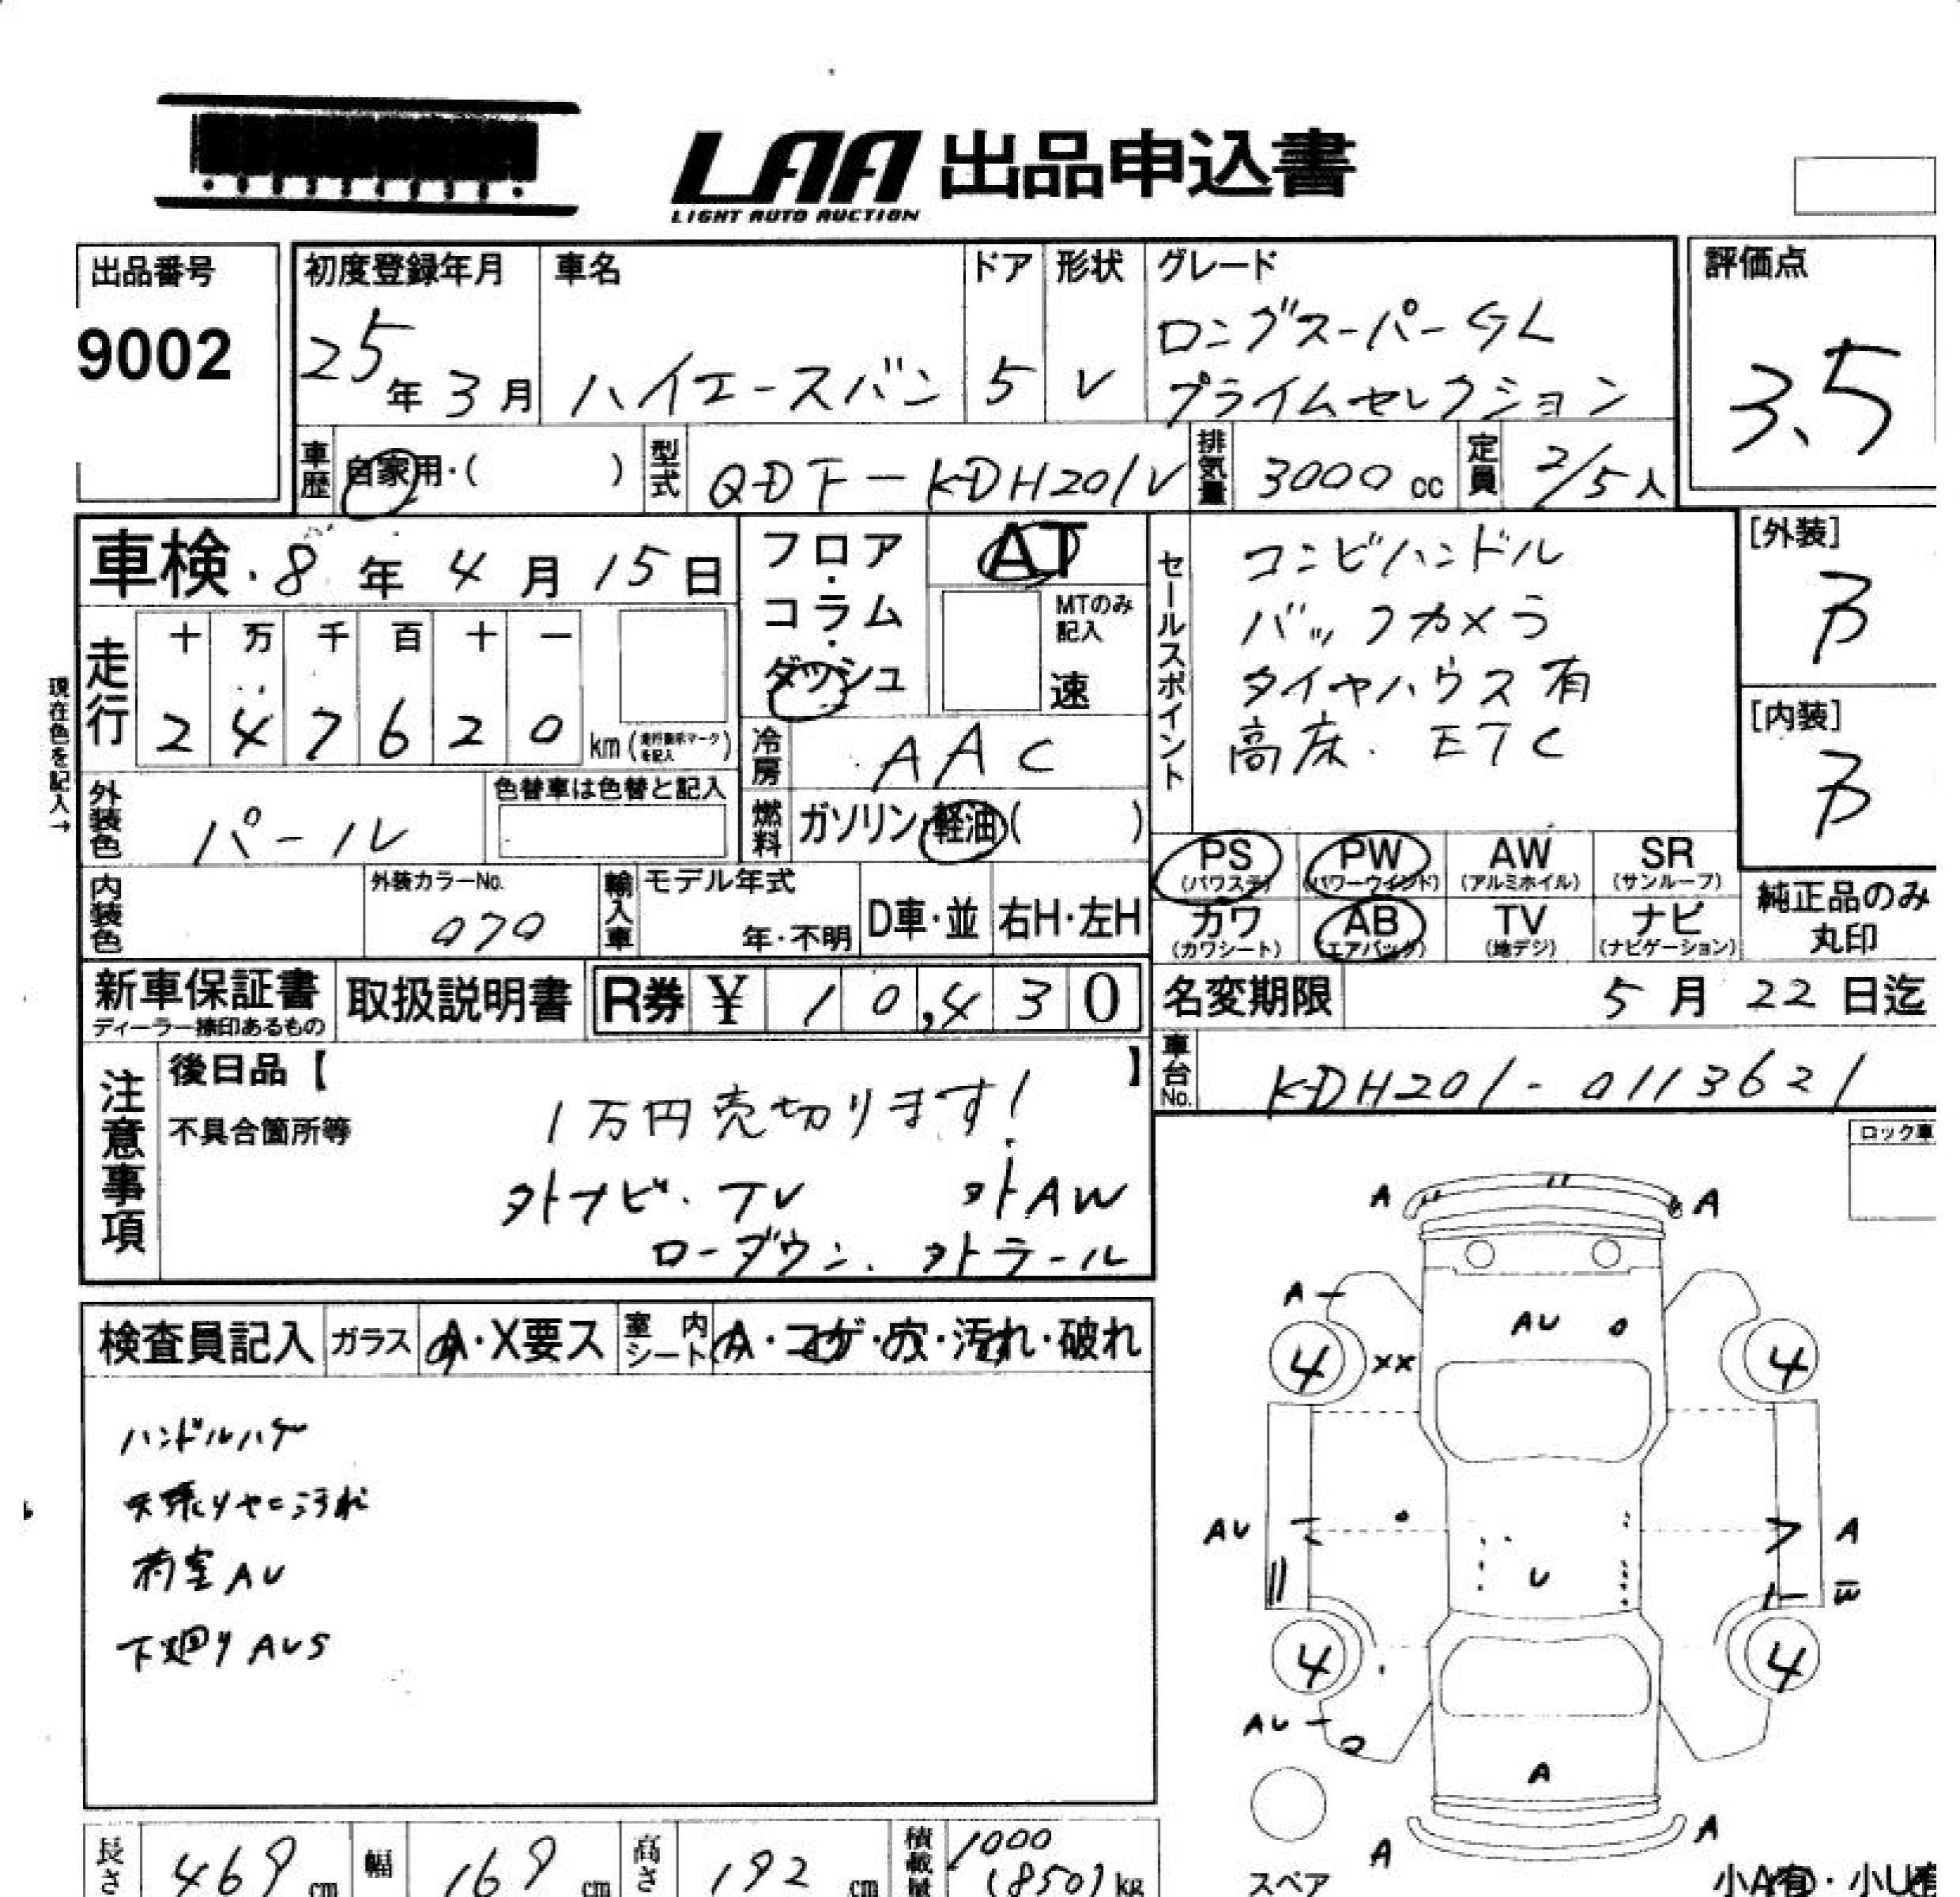 LAA 出品申込書
LIGHT AUTO AUCTION
出品番号
9002
初度登録年月
25年3月
車名
ハイエースバン
ドア
5
形状
V
グレード
ロングスーパーGL
プライムセレクション
評価点
3.5
車歴
自家用・( )
型式
QDF-KDH201V
排気量
3000cc
定員
2/5人
車検 8年4月15日
フロア・コラム・ダッシュ
AT
MTのみ記入
速
セールスポイント
コンビハンドル
バックカメラ
タイヤハウス有
高床. ETC
[外装]
B
[内装]
B
現在色を記入→
走行
十 万 千 百 十 一
2 4 7 6 2 0 km(走行表示マークを記入)
冷房
AAC
外装色
パール
色替車は色替と記入
燃料
ガソリン・軽油( )
PS
(パワステ)
PW
(パワーウインド)
AW
(アルミホイル)
SR
(サンルーフ)
カワ
(カワシート)
AB
(エアバッグ)
TV
(地デジ)
ナビ
(ナビゲーション)
純正品のみ
丸印
内装色
外装カラーNo.
070
輸入車
モデル年式
年・不明
D車・並
右H・左H
新車保証書
ディーラー捺印あるもの
取扱説明書
R券 ¥ 10,430
名変期限 5月22日迄
車台No.
KDH201-0113621
注意事項
後日品【 】
不具合箇所等
1万円売切ります!
外ナビ.TV 外AW
ローダウン. 外ラール
ロック車
検査員記入
ガラス
A・X要ス
室内シート
A・コゲ・穴・汚れ・破れ
ハンドルハゲ
天張りヤニ汚れ
荷室AU
下廻りAUS
A
A
A
AU
4
XX
4
AU
U
A
W
4
4
AU
A
A
A
スペア
小A有・小U有
長さ
469cm
幅
169cm
高さ
192cm
積載量
1000
(850)kg